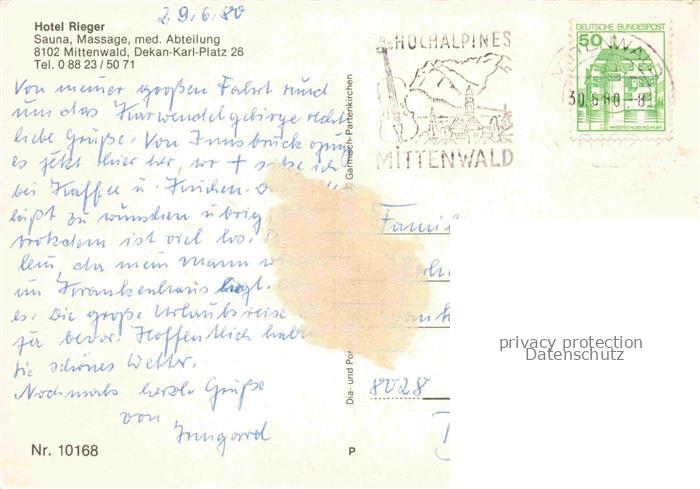 29.6.80
Hotel Rieger
Sauna, Massage, med. Abteilung
8102 Mittenwald, Dekan-Karl-Platz 28
Tel. 0 88 23 / 50 71
Von meiner großen Fahrt rund
um das Karwendelgebirge
liebe Grüße. Von Innsbruck
es jetzt hier her, wo + sitze ich
bei Kaffee u. Kuchen.
läßt zu wünschen übrig
trotzdem ist viel los.
da mein Mann
im Krankenhaus liegt.
es. Die große Urlaubsreise
ja bevor. Hoffentlich haben
Sie schönes Wetter.
Nochmals herzl. Grüße
von
Irmgard
Nr. 10168
Garmisch-Partenkirchen
Dia- und
P
HOCHALPINES
MITTENWALD
DEUTSCHE BUNDESPOST
50
30.6.80-8
WASSERSCHLOSS INZLINGEN
8028
privacy protection
Datenschutz